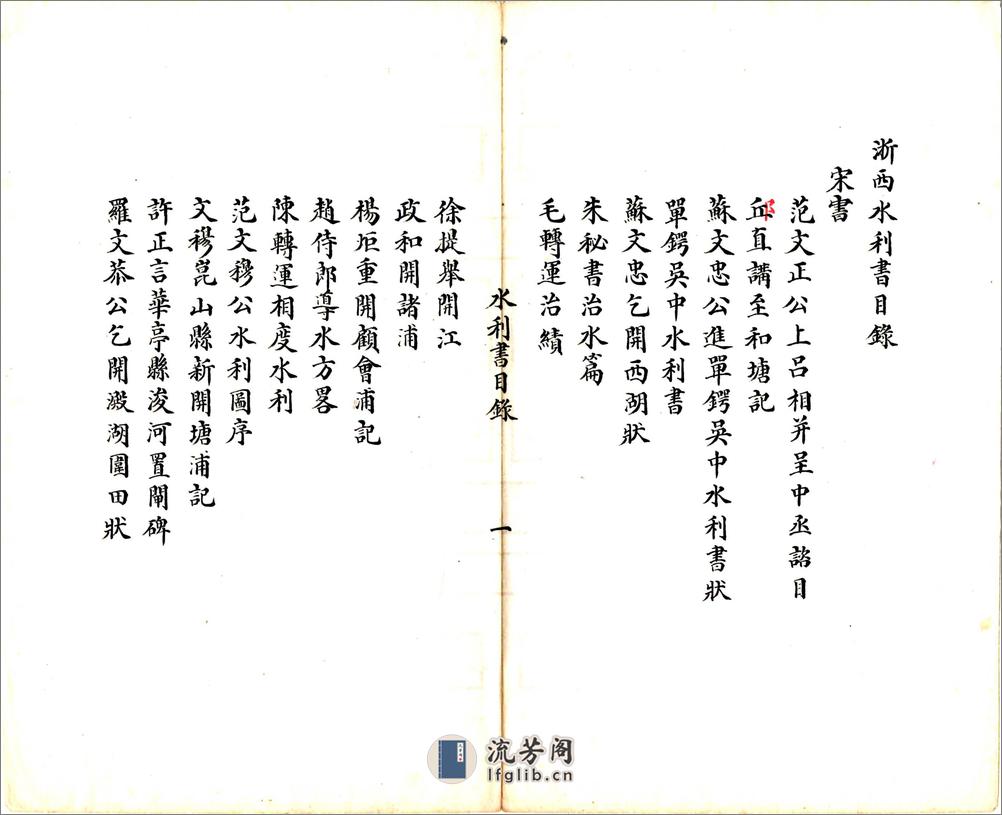 浙西水利書目錄
宋書
范文正公上呂相并呈中丞諮目
丘直講至和塘記
蘇文忠公進單鍔吳中水利書狀
單鍔吳中水利書
蘇文忠乞開西湖狀
朱秘書治水篇
毛轉運治績
水利書目錄
一
徐提舉開江
政和開諸浦
楊垢重開顧會浦記
趙侍郎導水方畧
陳轉運相度水利
范文穆公水利圖序
文穆崑山縣新開塘浦記
許正言華亭縣浚河置閘碑
羅文恭公乞開澱湖圍田狀
流芳阁
lfglib.cn